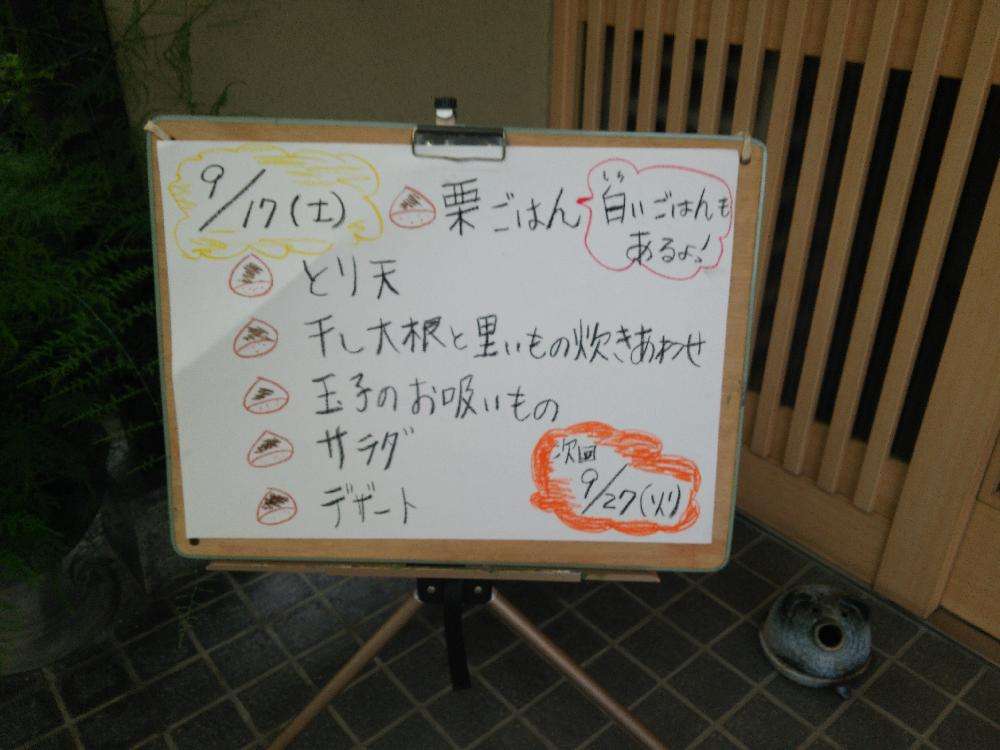 9/17(土)
栗ごはん
しろ
白いごはんも
あるよ!
とり天
干し大根と里いもの炊きあわせ
玉子のお吸いもの
サラダ
デザート
次回
9/27(火)